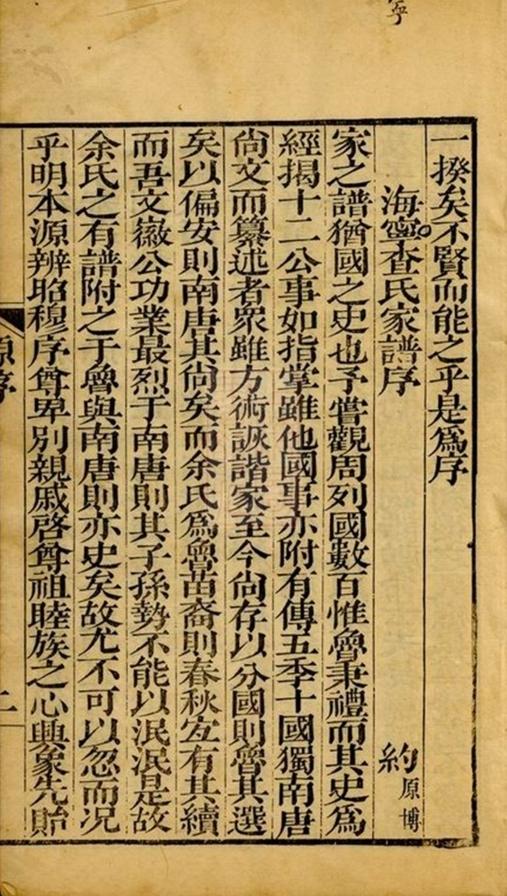 寧
一揆矣不賢而能之乎是爲序
海寧查氏家譜序 約 原博
家之譜猶國之史也予嘗觀周列國數百惟魯秉禮而其史爲
經揭十二公事如指掌雖他國事亦附有傳五季十國獨南唐
尙文而纂述者衆雖方術詼諧家至今尙存以分國則魯其選
矣以偏安則南唐其尙矣而余氏爲魯苗裔則春秋宐有其續
而吾文徽公功業最烈于南唐則其子孫勢不能以泯泯是故
余氏之有譜附之于魯與南唐則亦史矣故尤不可以忽而况
乎明本源辨昭穆序尊卑別親戚啓尊祖睦族之心興象先貽
原序
二